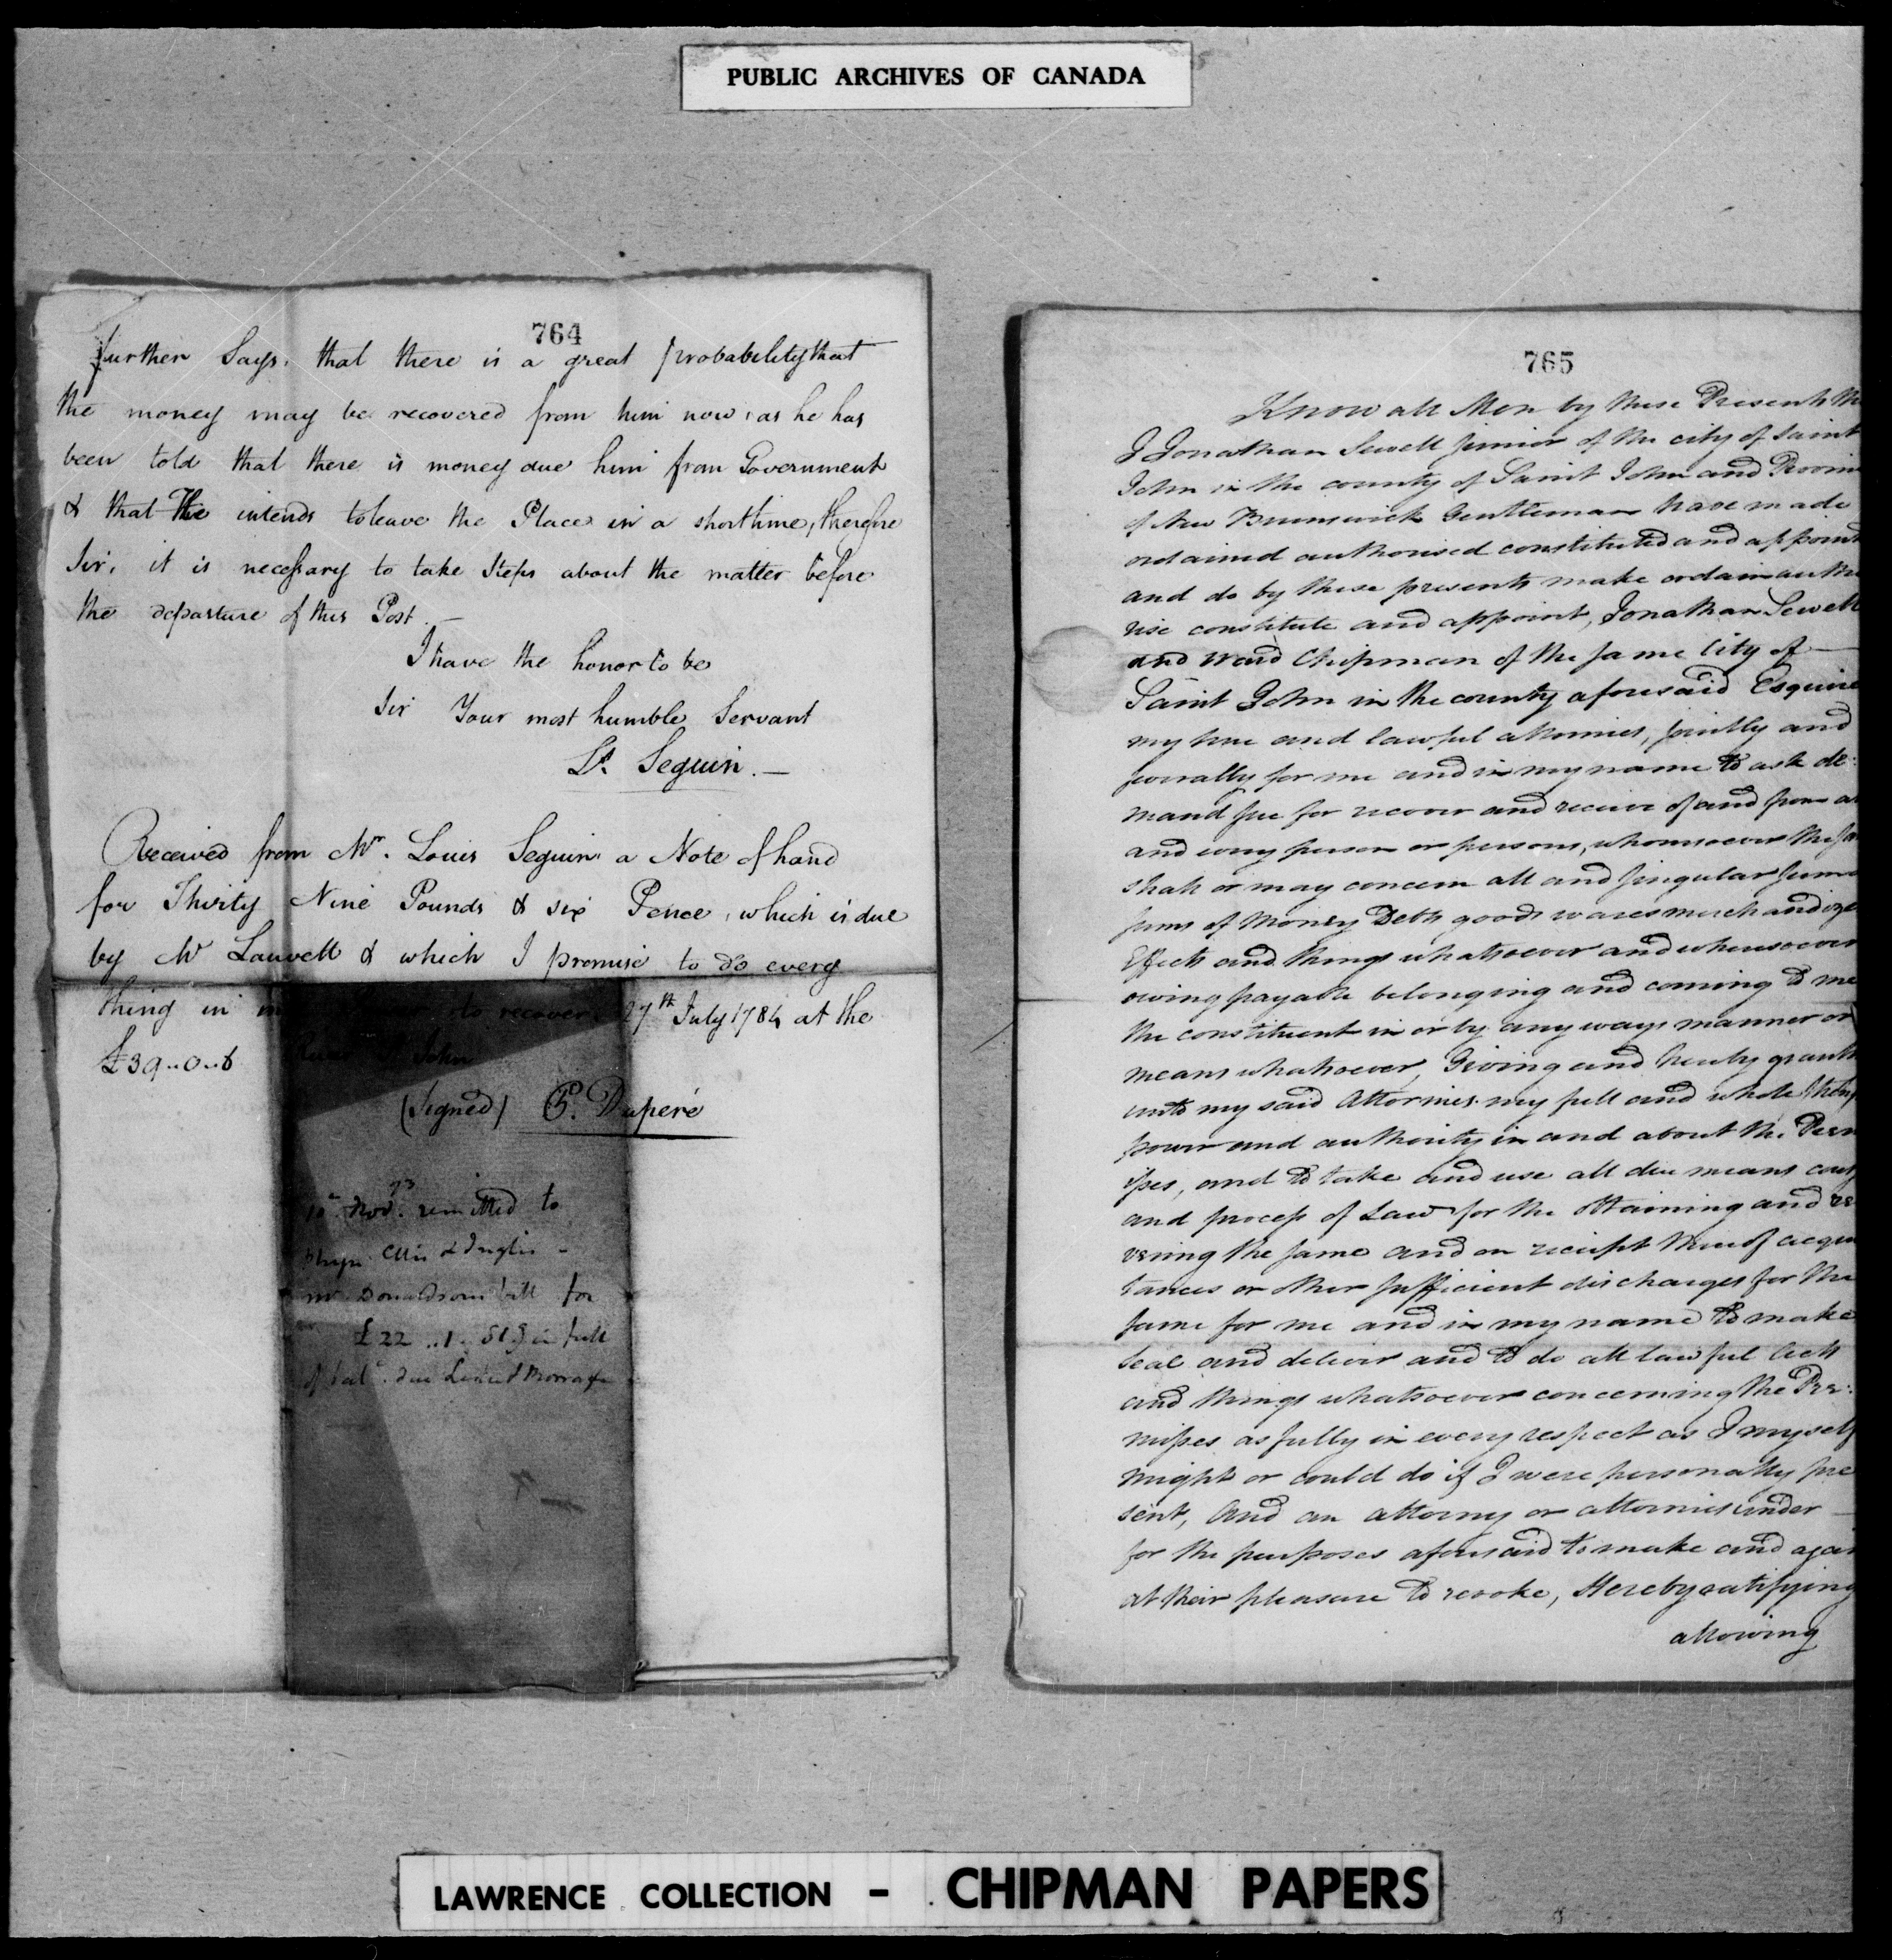 PUBLIC ARCHIVES OF CANADA
764
further Says, that there is a great probability that
the money may be recovered from him now, as he has
been told that there is money due him from Government
& that he intends to leave the Place in a short time, therefore
Sir, it is necessary to take Steps about the matter before
the departure of this Post. —
I have the honor to be
Sir Your most humble Servant
Ls. Seguin. —
Received from Mr. Louis Seguin a Note of hand
for Thirty Nine Pounds & six Pence, which is due
by Mr Lauvett & which I promise to do every
thing in to recover. 27th July 1784 at the
£39..0..6 John
(Signed) P. Duperé
10 Nov. 93 remitted to
Ellis & Inglis -
Mr Donaldsons bill for
£22 .. 1. Stg in full
of bal. due
765
Know all Men by these Presents th
I Jonathan Sewell Junior of the city of Saint
John in the county of Saint John and Provin
of New Brunswick Gentleman have made
ordained authorised constituted and appoint
and do by these presents make ordain autho
rise constitute and appoint, Jonathan Sewell
and Ward Chipman of the same City of —
Saint John in the county aforesaid Esquire
my true and lawful attornies, jointly and
severally for me and in my name to ask de:
mand sue for recover and receive of and from a
and every person or persons, whomsoever the sa
shall or may concern all and singular sum
sums of Money Debts goods wares merchandize
Effects and things whatsoever and wheresoever
owing payable belonging and coming to me
the constituent in or by any ways manner or
means whatsoever, Giving and hereby grant
unto my said Attornies my full and whole
power and authority in and about the Prem
ises, and to take and use all due means
and process of Law for the obtaining and re
vering the same and on receipt thereof acqu
tances or other sufficient discharges for the
same for me and in my name to make
seal and deliver and to do all lawful Acts
and things whatsoever concerning the Pre:
misses as fully in every respect as I myself
might or could do if I were personally pre
sent, And an attorny or attornies under —
for the purposes aforesaid to make and agai
at their pleasure to revoke, Hereby ratifying
allowing
LAWRENCE COLLECTION - CHIPMAN PAPERS